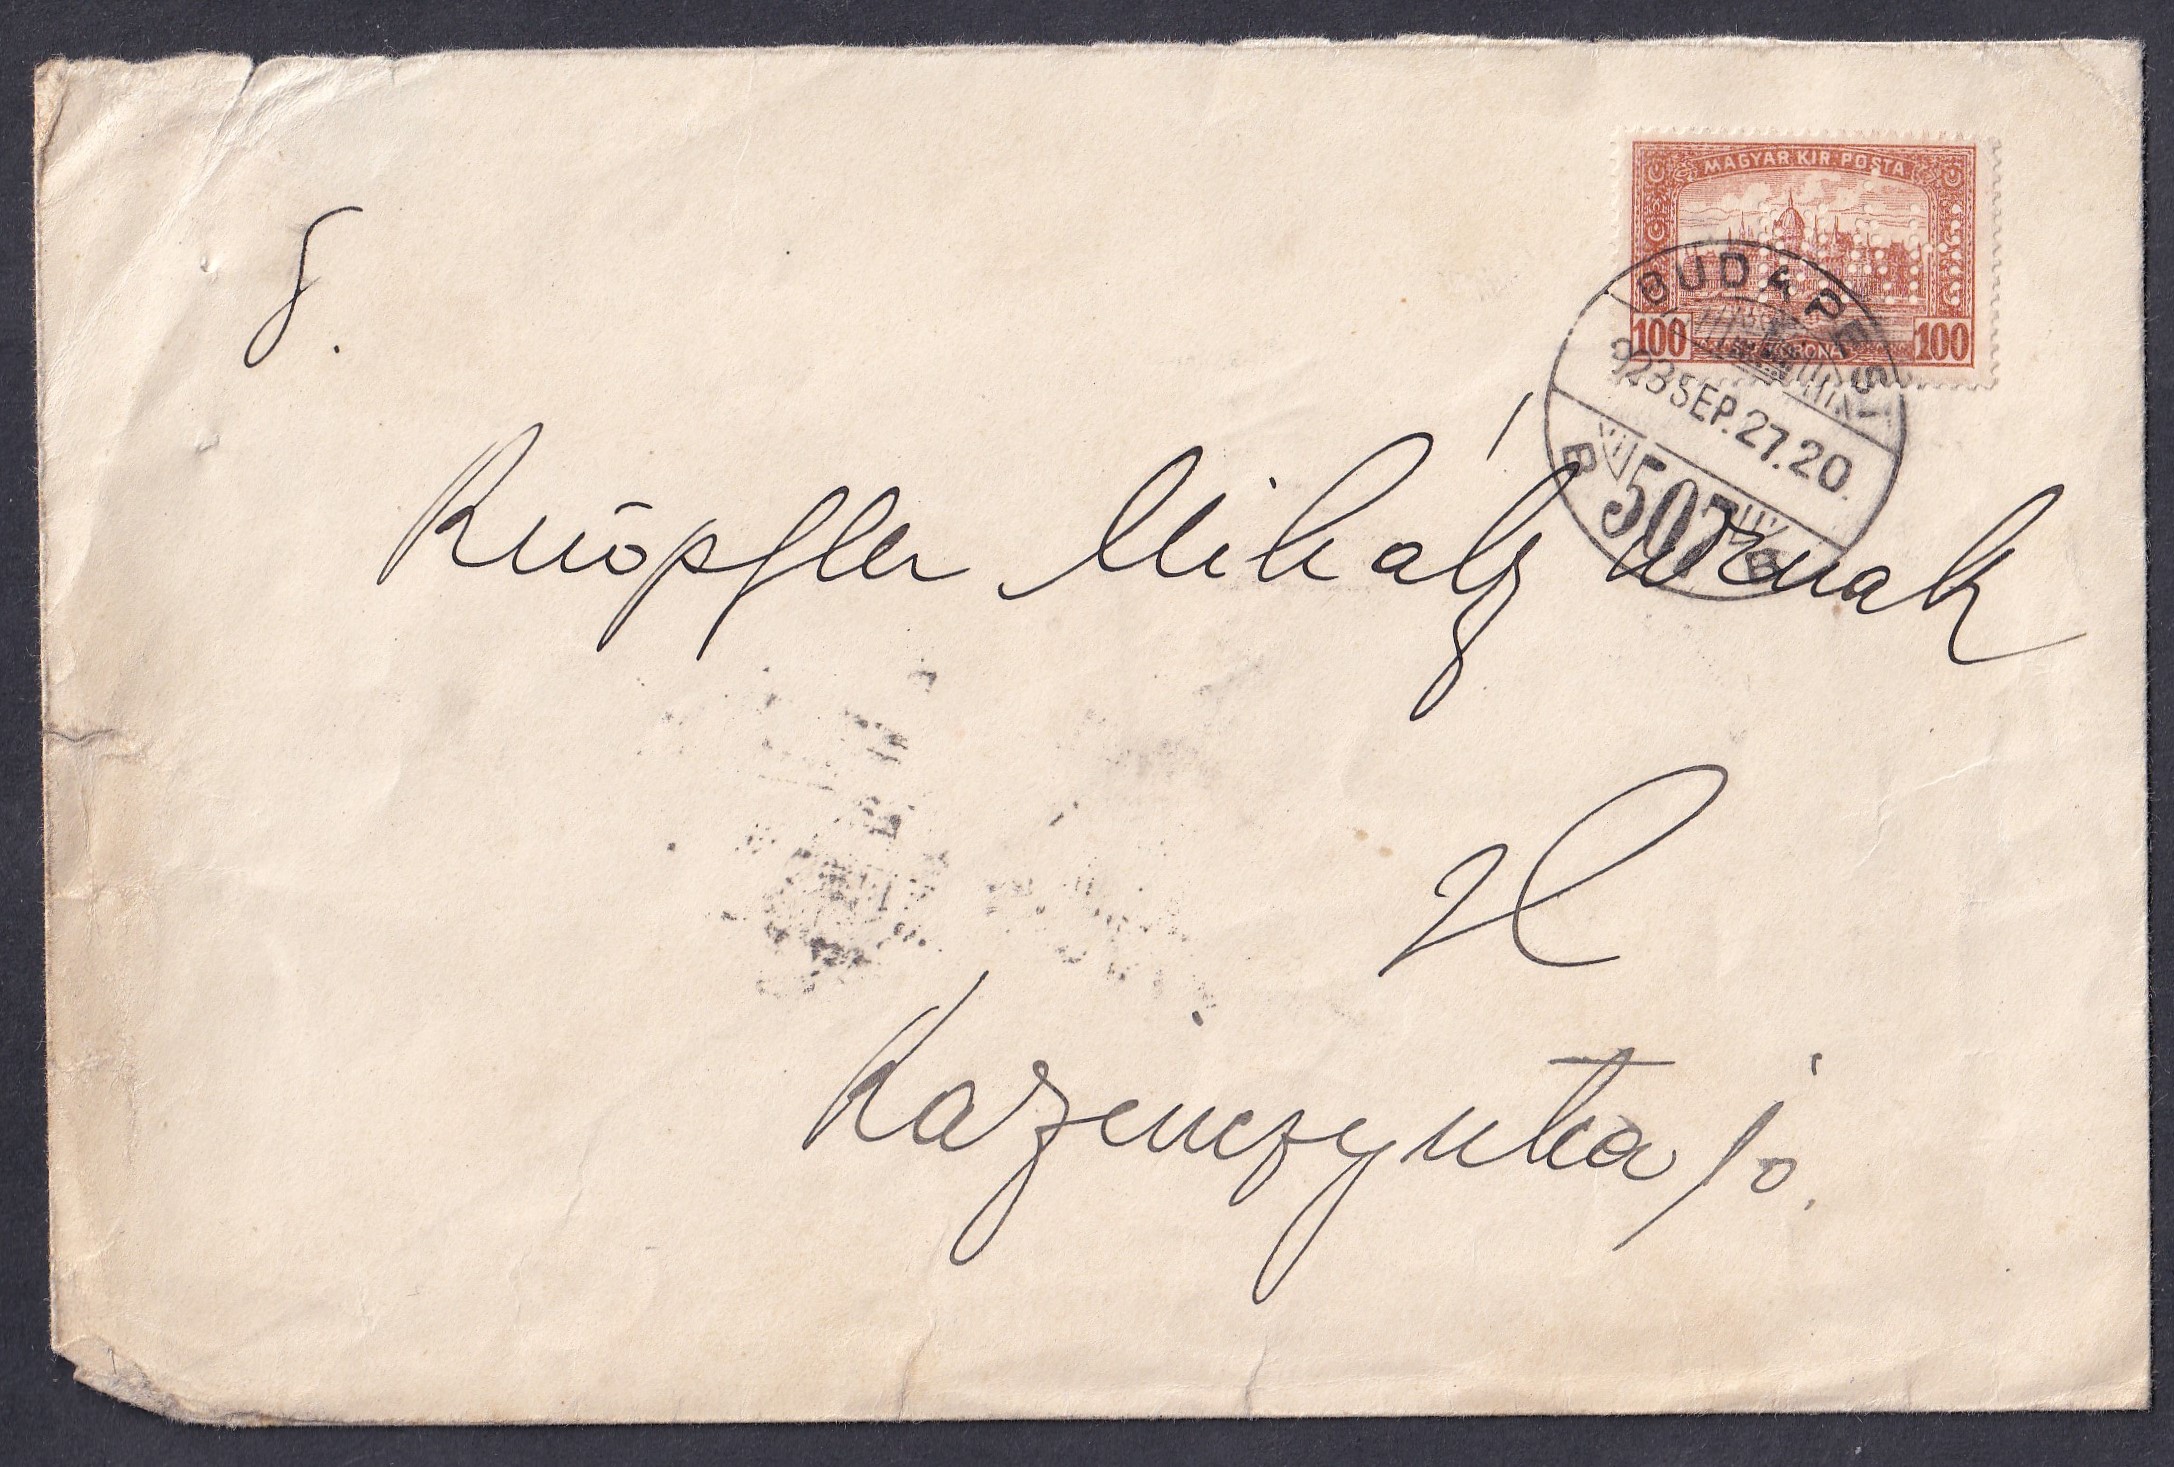 MAGYAR KIR. POSTA
100 KORONA 100
BUDAPEST
923 SEP. 27. 20.
B 507 B
J.
Knöpfler Mihály úrnak
Kazinczy utca 10.